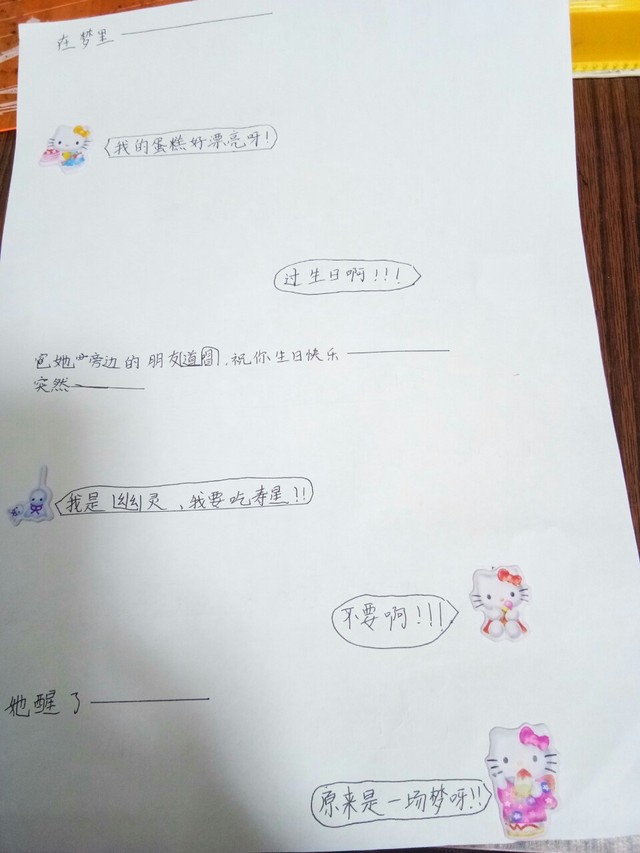 在梦里————
我的蛋糕好漂亮呀!
过生日啊!!!
她旁边的朋友道,祝你生日快乐————
突然————
我是幽灵,我要吃寿星!!
不要啊!!!
她醒了————
原来是一场梦呀!!